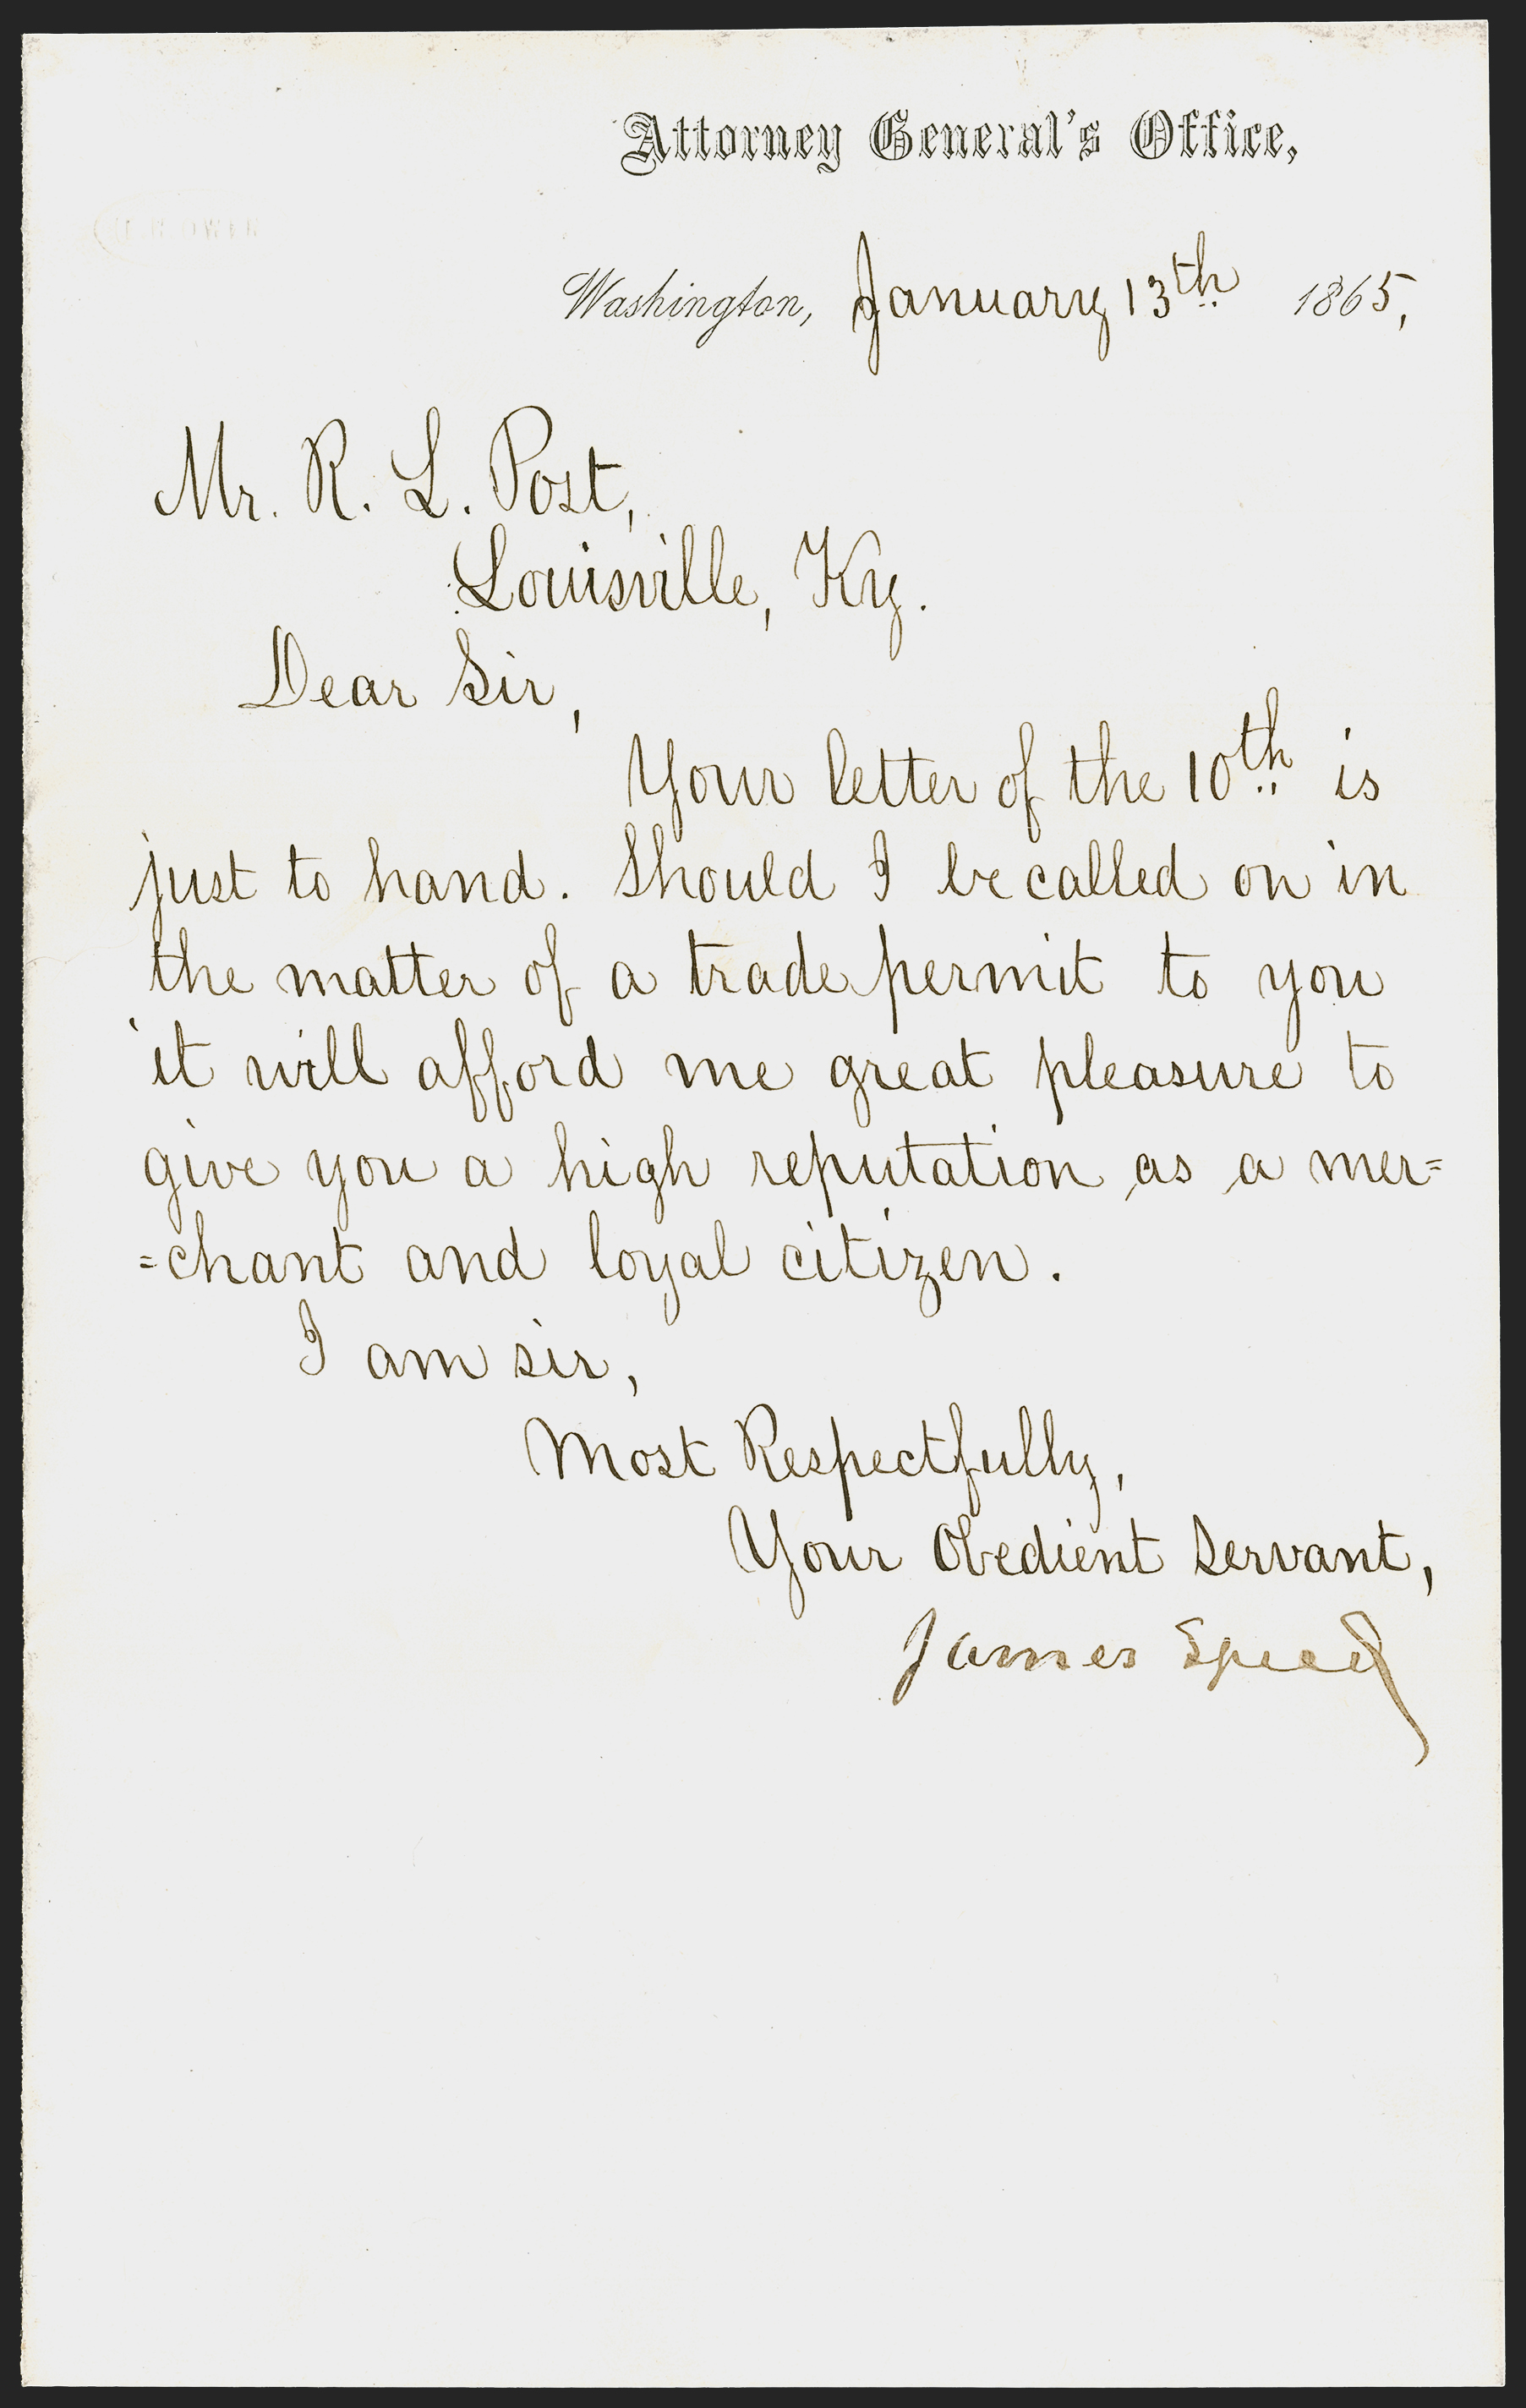 Attorney General's Office,
Washington, January 13th 1865,
Mr. R. L. Post,
Louisville, Ky.
Dear Sir,
Your letter of the 10th is
just to hand. Should I be called on in
the matter of a trade permit to you
it will afford me great pleasure to
give you a high reputation as a mer=
=chant and loyal citizen.
I am sir,
Most Respectfully,
Your Obedient Servant,
James Speed